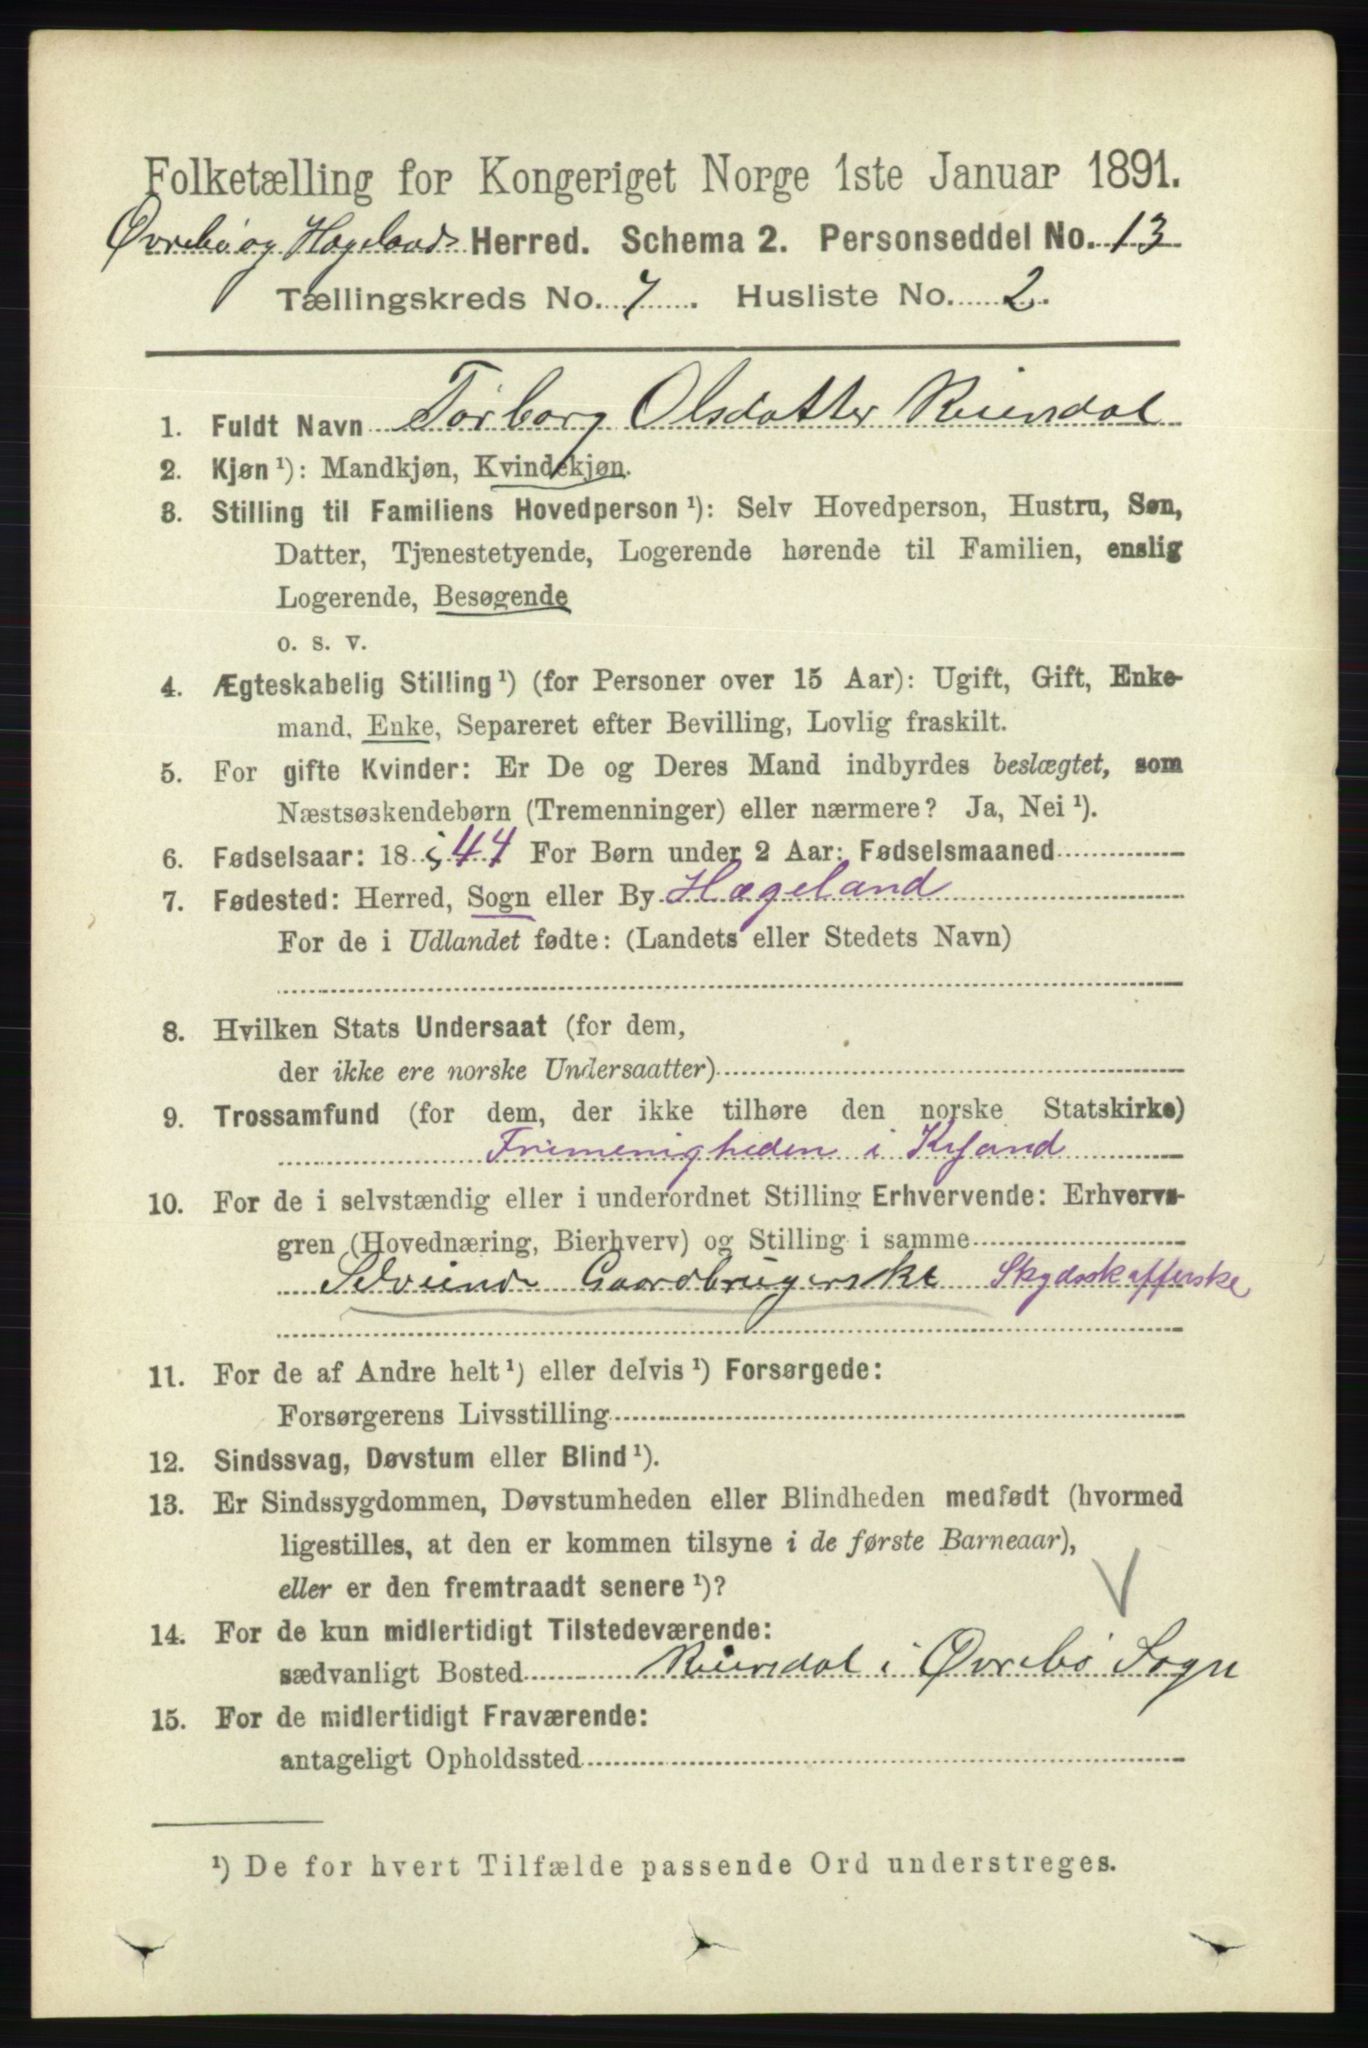 Folketælling for Kongeriget Norge 1ste Januar 1891.
Øvrebø og Hægelands Herred. Schema 2. Personseddel No. 13
Tællingskreds No. 7. Husliste No. 2.
1. Fuldt Navn Torborg Olsdatter Reiersdal
2. Kjøn ¹): Mandkjøn, Kvindekjøn.
3. Stilling til Familiens Hovedperson ¹): Selv Hovedperson, Hustru, Søn,
Datter, Tjenestetyende, Logerende hørende til Familien, enslig
Logerende, Besøgende
o. s. v.
4. Ægteskabelig Stilling ¹) (for Personer over 15 Aar): Ugift, Gift, Enke-
mand, Enke, Separeret efter Bevilling, Lovlig fraskilt.
5. For gifte Kvinder: Er De og Deres Mand indbyrdes beslægtet, som
Næstsøskendebørn (Tremenninger) eller nærmere? Ja, Nei ¹).
6. Fødselsaar: 18 44 For Børn under 2 Aar: Fødselsmaaned
7. Fødested: Herred, Sogn eller By Hægeland
For de i Udlandet fødte: (Landets eller Stedets Navn)
8. Hvilken Stats Undersaat (for dem,
der ikke ere norske Undersaatter)
9. Trossamfund (for dem, der ikke tilhøre den norske Statskirke)
Frimenigheden i Krsand
10. For de i selvstændig eller i underordnet Stilling Erhvervende: Erhvervs-
gren (Hovednæring, Bierhverv) og Stilling i samme
Selveiende Gaardbrugerske Skydsskafferske
11. For de af Andre helt ¹) eller delvis ¹) Forsørgede:
Forsørgerens Livsstilling
12. Sindssvag, Døvstum eller Blind ¹).
13. Er Sindssygdommen, Døvstumheden eller Blindheden medfødt (hvormed
ligestilles, at den er kommen tilsyne i de første Barneaar),
eller er den fremtraadt senere ¹)?
14. For de kun midlertidigt Tilstedeværende:
sædvanligt Bosted Reiersdal i Øvrebø Sogn
15. For de midlertidigt Fraværende:
antageligt Opholdssted
¹) De for hvert Tilfælde passende Ord understreges.